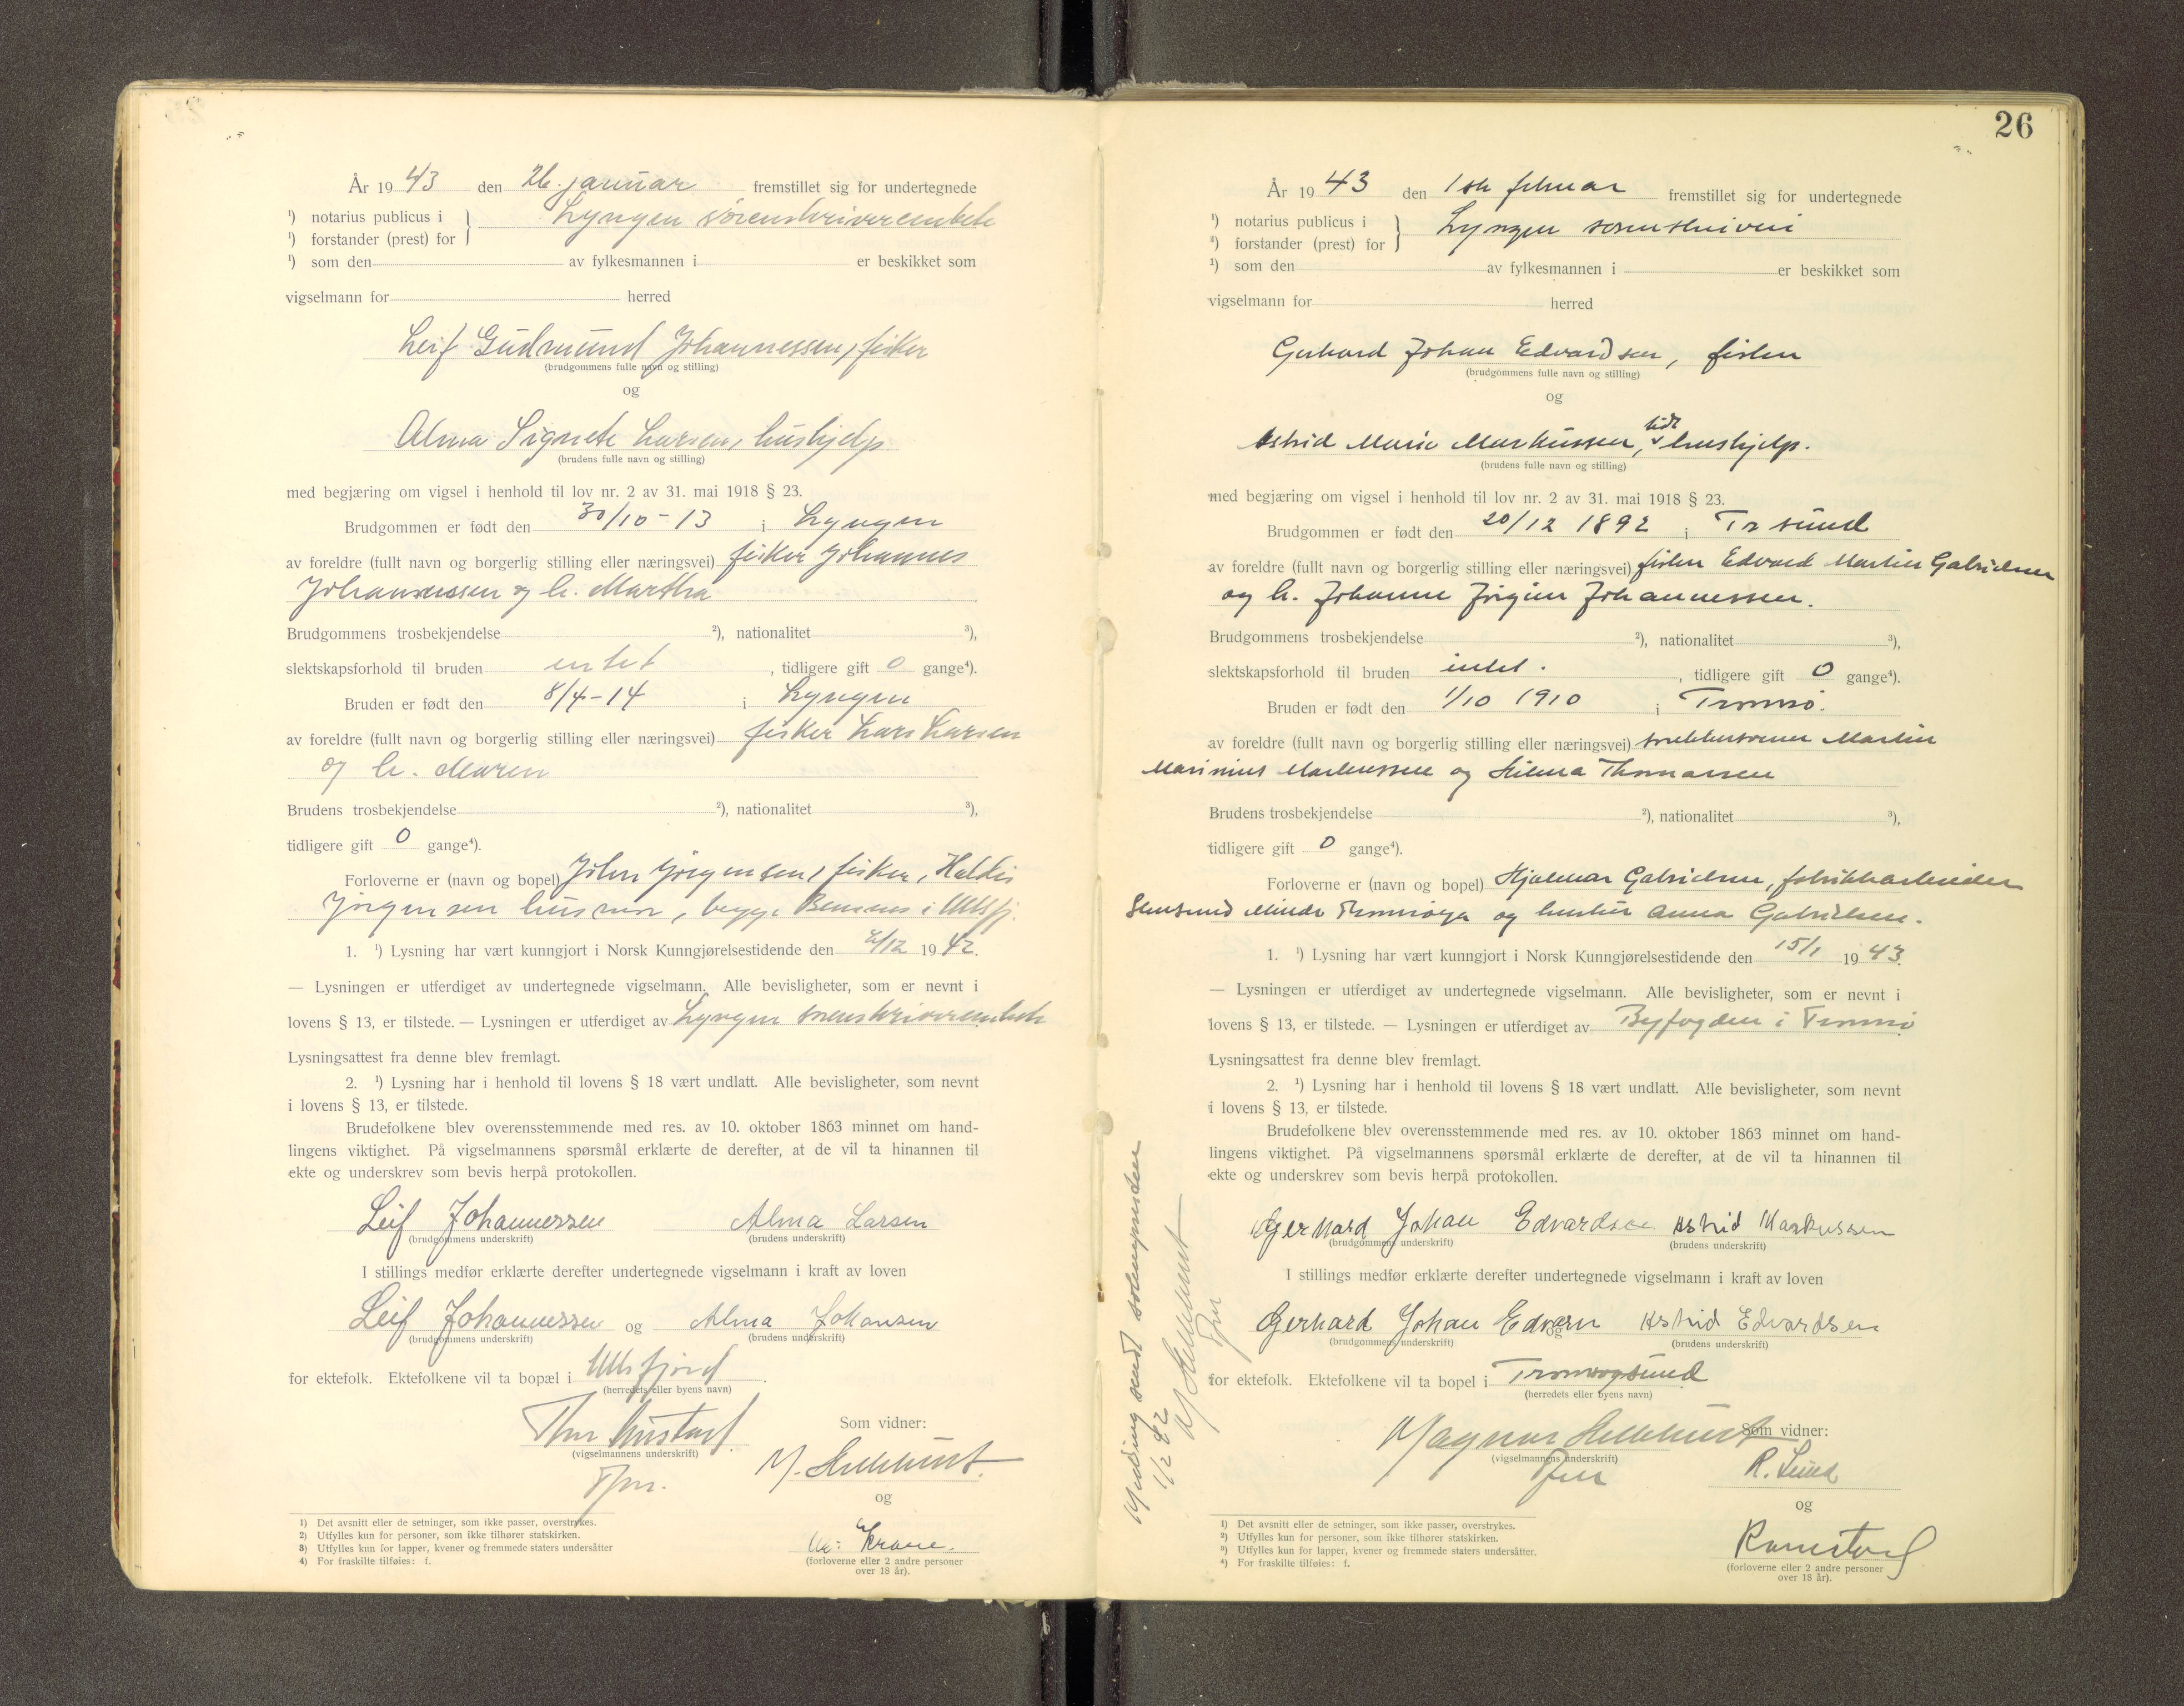 År 19 43 den 26. januar fremstillet sig for undertegnede
¹) notarius publicus i
¹) forstander (prest) for
Lyngen sorenskriverembete
¹) som den av fylkesmannen i er beskikket som
vigselmann for herred
Leif Gudmund Johannessen, fisker
(brudgommens fulle navn og stilling)
og
Alma Signete Larsen, hushjelp
(brudens fulle navn og stilling)
med begjæring om vigsel i henhold til lov nr. 2 av 31. mai 1918 § 23.
Brudgommen er født den 30/10-13 i Lyngen
av foreldre (fullt navn og borgerlig stilling eller næringsvei) fisker Johannes
Johannessen og h. Martha
Brudgommens trosbekjendelse ²), nationalitet ³),
slektskapsforhold til bruden intet, tidligere gift 0 gange⁴).
Bruden er født den 8/4-14 i Lyngen
av foreldre (fullt navn og borgerlig stilling eller næringsvei) fisker Lars Larsen
og h. Maren
Brudens trosbekjendelse ²), nationalitet ³),
tidligere gift 0 gange⁴).
Forloverne er (navn og bopel) John Jørgensen, fisker, Haldis
Jørgensen husmor, begge i Ullsfj.
1. ¹) Lysning har vært kunngjort i Norsk Kunngjørelsestidende den 2/12 1942.
— Lysningen er utferdiget av undertegnede vigselmann. Alle bevisligheter, som er nevnt i
lovens § 13, er tilstede. — Lysningen er utferdiget av Lyngen sorenskriverembete
Lysningsattest fra denne blev fremlagt.
2. ¹) Lysning har i henhold til lovens § 18 vært undlatt. Alle bevisligheter, som nevnt
i lovens § 13, er tilstede.
Brudefolkene blev overensstemmende med res. av 10. oktober 1863 minnet om hand-
lingens viktighet. På vigselmannens spørsmål erklærte de derefter, at de vil ta hinannen til
ekte og underskrev som bevis herpå protokollen.
Leif Johannessen Alma Larsen
(brudgommens underskrift) (brudens underskrift)
I stillings medfør erklærte derefter undertegnede vigselmann i kraft av loven
Leif Johannessen og Alma Johansen
(brudgommens underskrift) (brudens underskrift)
for ektefolk. Ektefolkene vil ta bopæl i Ullsfjord.
(herredets eller byens navn)
Thor
Som vidner:
(vigselmannens underskrift)
M.
og
Krane.
(forloverne eller 2 andre personer
over 18 år).
1) Det avsnitt eller de setninger, som ikke passer, overstrykes.
2) Utfylles kun for personer, som ikke tilhører statskirken.
3) Utfylles kun for lapper, kvener og fremmede staters undersåtter
4) For fraskilte tilføies: f.
26
År 19 43 den 1ste februar fremstillet sig for undertegnede
¹) notarius publicus i
²) forstander (prest) for
Lyngen sorenskriveri
¹) som den av fylkesmannen i er beskikket som
vigselmann for herred
Gerhard Johan Edvardsen, fisker
(brudgommens fulle navn og stilling)
og
tidl
Astrid Marie Markussen, hushjelp.
(brudens fulle navn og stilling)
med begjæring om vigsel i henhold til lov nr. 2 av 31. mai 1918 § 23.
Brudgommen er født den 20/12 1892 i Tr sund
av foreldre (fullt navn og borgerlig stilling eller næringsvei) fisker Edvard Martin Gabrielsen
og h. Johanne Johannessen.
Brudgommens trosbekjendelse ²), nationalitet ³),
slektskapsforhold til bruden intet. , tidligere gift 0 gange⁴).
Bruden er født den 1/10 1910 i Tromsø.
av foreldre (fullt navn og borgerlig stilling eller næringsvei) Martin
Marinius Markussen og Hilma Thomassen
Brudens trosbekjendelse ²), nationalitet ³),
tidligere gift 0 gange⁴).
Forloverne er (navn og bopel) Hjalmar Gabrielsen, fabrikkarbeider
Minde Tromsøya og hustru Anna Gabrielsen.
1. ¹) Lysning har vært kunngjort i Norsk Kunngjørelsestidende den 15/1 1943.
— Lysningen er utferdiget av undertegnede vigselmann. Alle bevisligheter, som er nevnt i
lovens § 13, er tilstede. — Lysningen er utferdiget av Byfogden i Tromsø
Lysningsattest fra denne blev fremlagt.
2. ¹) Lysning har i henhold til lovens § 18 vært undlatt. Alle bevisligheter, som nevnt
i lovens § 13, er tilstede.
Brudefolkene blev overensstemmende med res. av 10. oktober 1863 minnet om hand-
lingens viktighet. På vigselmannens spørsmål erklærte de derefter, at de vil ta hinannen til
ekte og underskrev som bevis herpå protokollen.
Gerhard Johan Edvardsen Astrid Markussen
(brudgommens underskrift) (brudens underskrift)
I stillings medfør erklærte derefter undertegnede vigselmann i kraft av loven
Gerhard Johan Edvarn og Astrid Edvardsen
(brudgommens underskrift) (brudens underskrift)
for ektefolk. Ektefolkene vil ta bopel i Tromsøysund
(herredets eller byens navn)
Magnus
Som vidner:
(vigselmannens underskrift)
R. Lund
og
Ramstad
(forloverne eller 2 andre personer
over 18 år).
¹) Det avsnitt eller de setninger, som ikke passer, overstrykes.
²) Utfylles kun for personer, som ikke tilhører statskirken.
³) Utfylles kun for lapper, kvener og fremmede staters undersåtter.
⁴) For fraskilte tilføies: f.
Melding sendt soknepresten